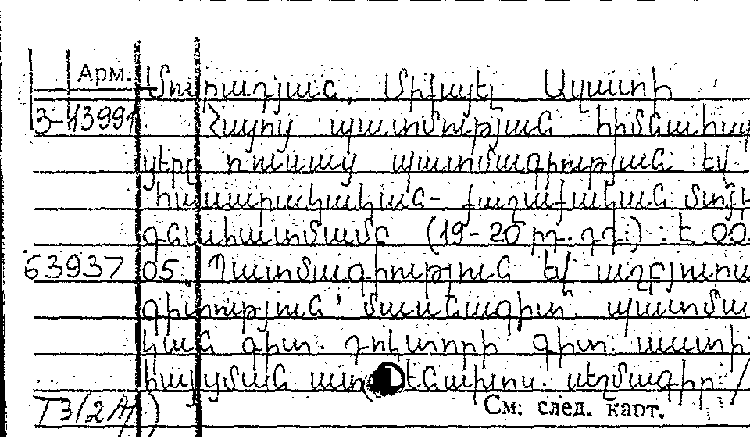 Арм. Մուրադյան, Միքայել Ազատի
3-43991 Հայոց պատմության հիմնահար
ցերը ռուսաց պատմագրության եվ
հասարակական- քաղաքական մտքի
գնահատմամբ (19-20 րդ. դդ.) : Է 00.
63937 05. Պատմագրություն եվ աղբյուրա
գիտություն: մասնագիտ. պատմա
կան գիտ. դոկտորի գիտ. աստի
հայցման ատենախոս. սեղմագիր /
Т3(2Ар)
См. след. карт.